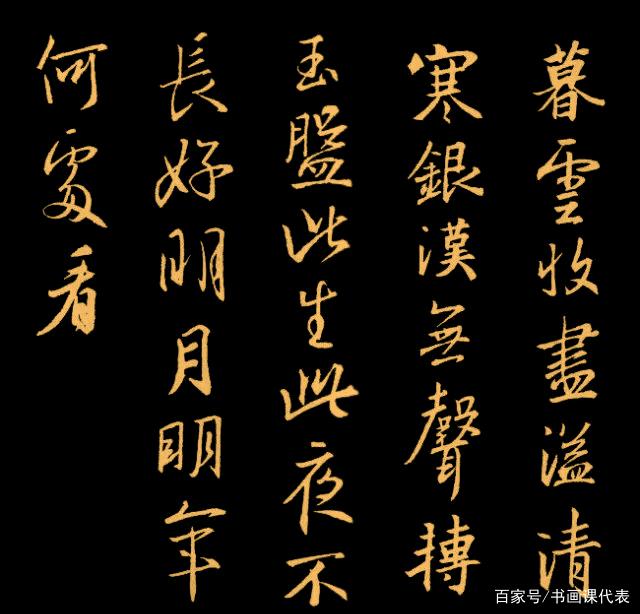 暮雲收盡溢清
寒銀漢無聲轉
玉盤此生此夜不
長好明月明年
何處看
百家号/书画课代表